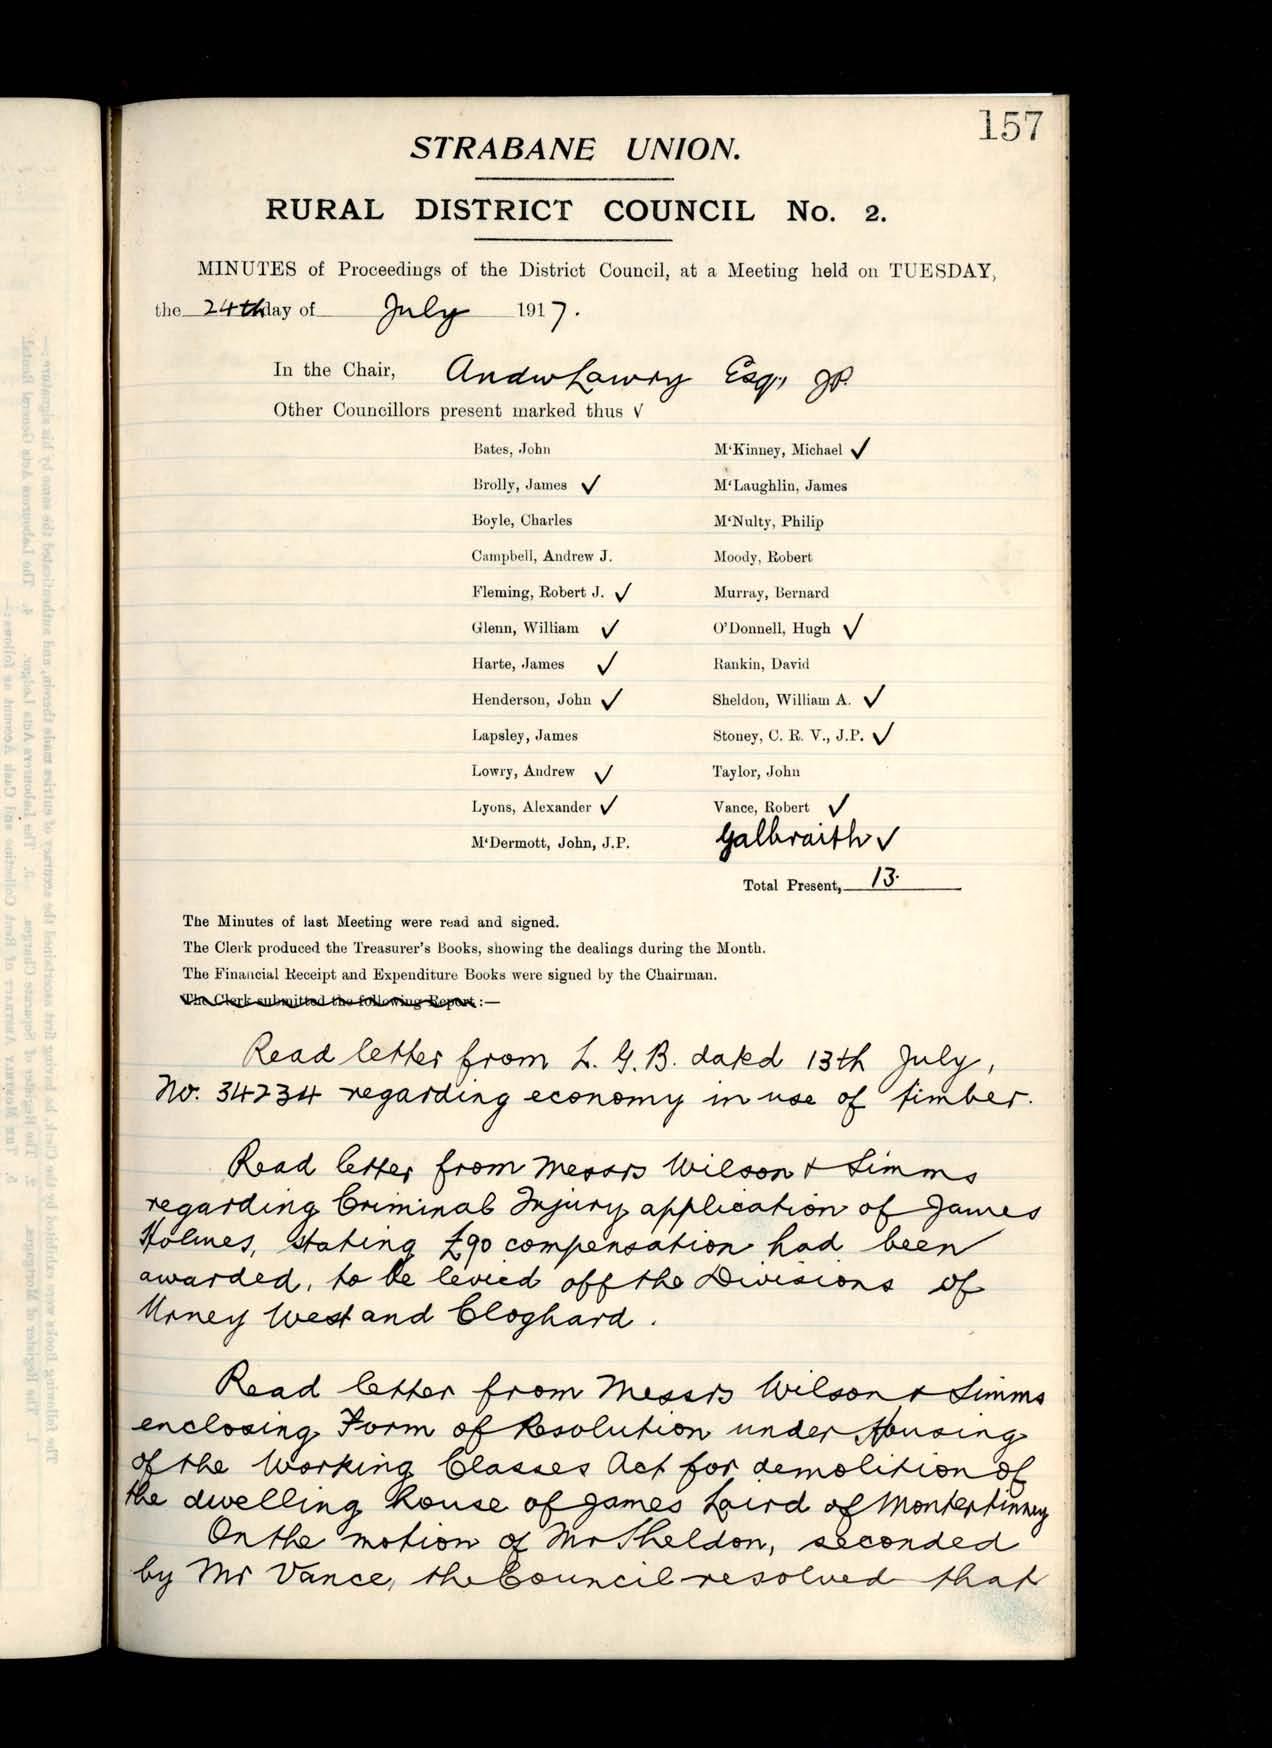 157
STRABANE UNION.
RURAL DISTRICT COUNCIL No. 2.
MINUTES of Proceedings of the District Council, at a Meeting held on TUESDAY,
the 24th day of July 1917.
In the Chair, Andw Lowry Esq., JP.
Other Councillors present marked thus √
Bates, John
Brolly, James ✓
Boyle, Charles
Campbell, Andrew J.
Fleming, Robert J. ✓
Glenn, William ✓
Harte, James ✓
Henderson, John ✓
Lapsley, James
Lowry, Andrew ✓
Lyons, Alexander ✓
M'Dermott, John, J.P.
M'Kinney, Michael ✓
M'Laughlin, James
M'Nulty, Philip
Moody, Robert
Murray, Bernard
O'Donnell, Hugh ✓
Rankin, David
Sheldon, William A. ✓
Stoney, C. R. V., J.P. ✓
Taylor, John
Vance, Robert ✓
Galbraith ✓
Total Present, 13.
The Minutes of last Meeting were read and signed.
The Clerk produced the Treasurer's Books, showing the dealings during the Month.
The Financial Receipt and Expenditure Books were signed by the Chairman.
The Clerk submitted the following Report:—
Read letter from L. G. B. dated 13th July,
No. 34234 regarding economy in use of timber.
Read letter from Messrs Wilson & Simms
regarding Criminal Injury application of James
Holmes, stating £90 compensation had been
awarded, to be levied off the Divisions of
Urney West and Cloghard.
Read letter from Messrs Wilson & Simms
enclosing Form of Resolution under Housing
of the Working Classes Act for demolition of
the dwelling house of James Laird of
On the motion of Mr Sheldon, seconded
by Mr Vance, the Council resolved that